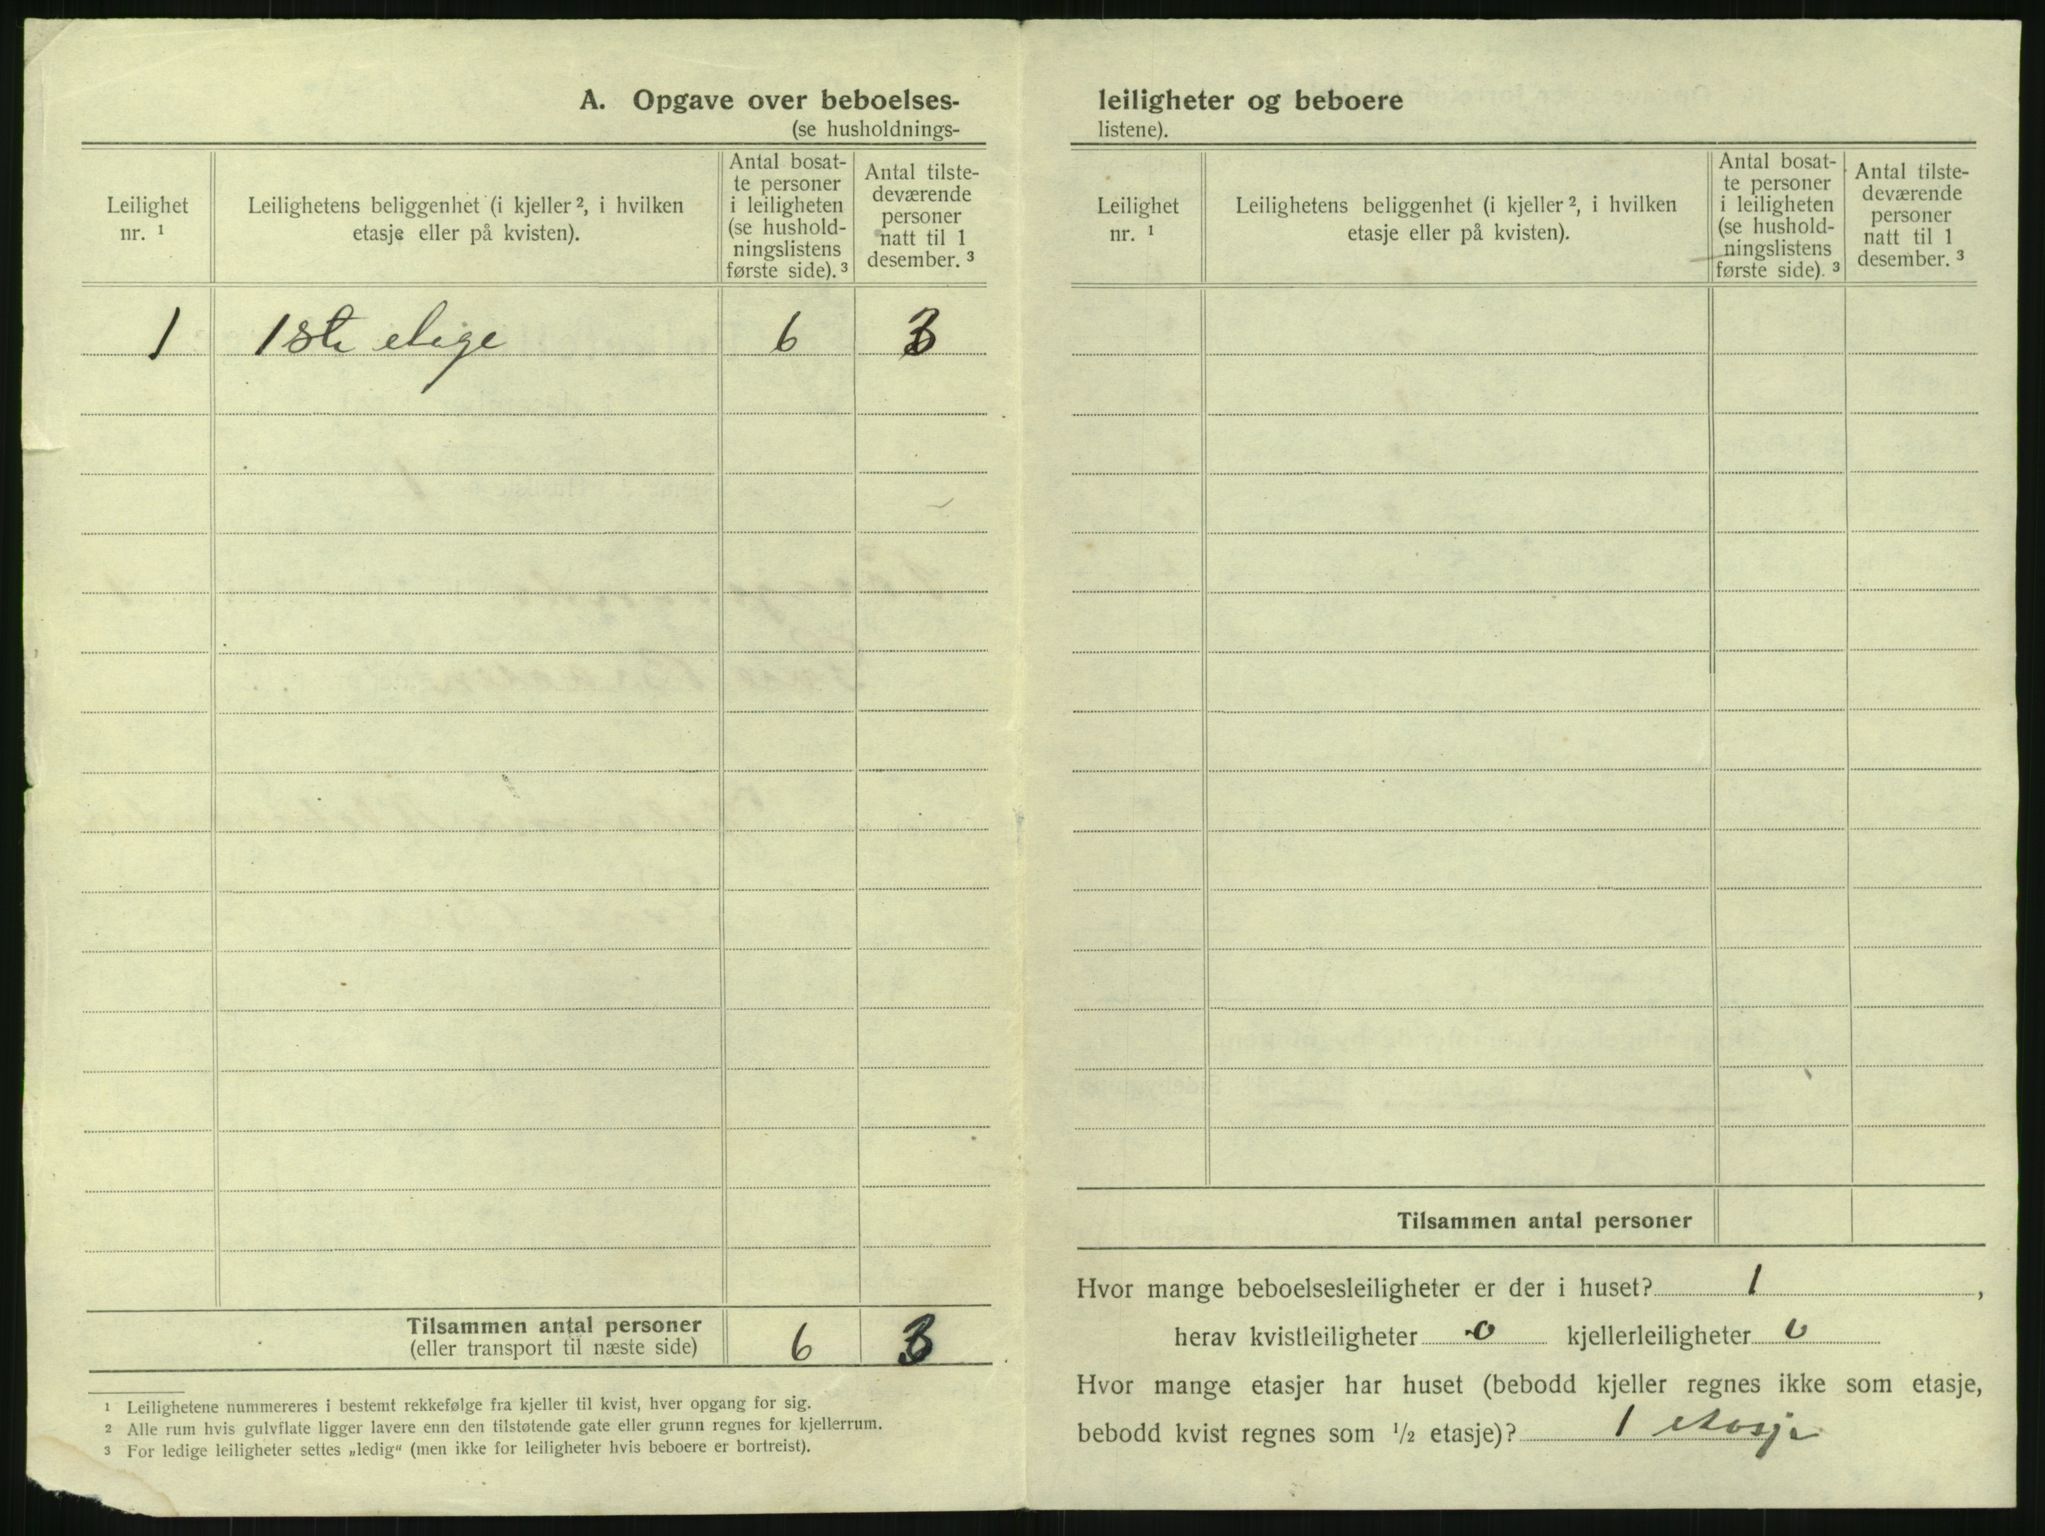 A. Opgave over beboelses-
(se husholdnings-
Leilighet
nr. ¹
Leilighetens beliggenhet (i kjeller ², i hvilken
etasje eller på kvisten).
Antal bosat-
te personer
i leiligheten
(se hushold-
ningslistens
første side). ³
Antal tilste-
deværende
personer
natt til 1
desember. ³
1 1ste etage 6 3
Tilsammen antal personer
(eller transport til næste side)
6 3
¹ Leilighetene nummereres i bestemt rekkefølge fra kjeller til kvist, hver opgang for sig.
² Alle rum hvis gulvflate ligger lavere enn den tilstøtende gate eller grunn regnes for kjellerrum.
³ For ledige leiligheter settes „ledig“ (men ikke for leiligheter hvis beboere er bortreist).
leiligheter og beboere
listene).
Leilighet
nr. ¹
Leilighetens beliggenhet (i kjeller ², i hvilken
etasje eller på kvisten).
Antal bosat-
te personer
i leiligheten
(se hushold-
ningslistens
første side). ³
Antal tilste-
deværende
personer
natt til 1
desember. ³
Tilsammen antal personer
Hvor mange beboelsesleiligheter er der i huset? 1,
herav kvistleiligheter 0 kjellerleiligheter 0
Hvor mange etasjer har huset (bebodd kjeller regnes ikke som etasje,
bebodd kvist regnes som ½ etasje)? 1 etasje